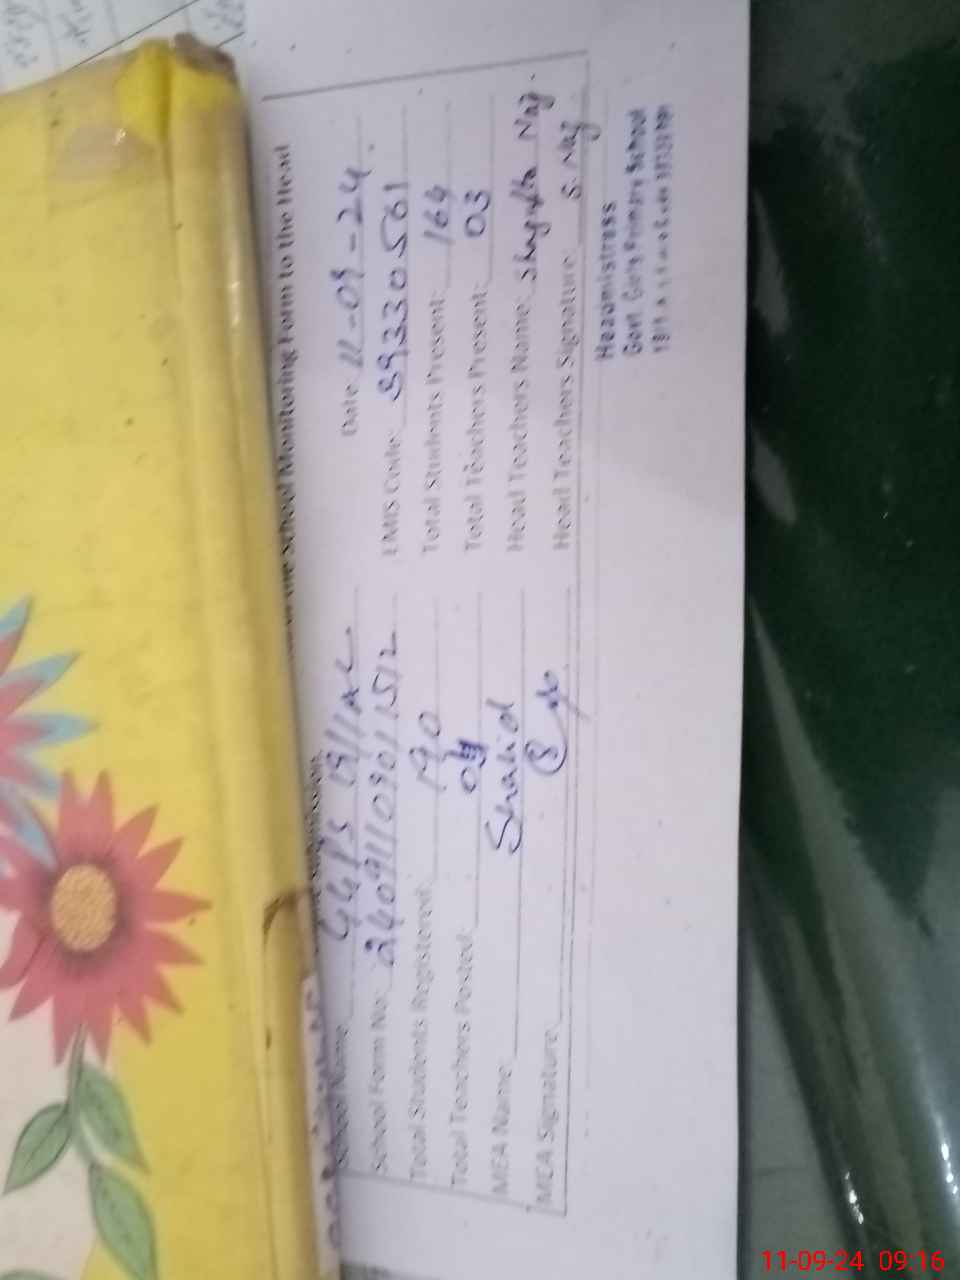 the School Monitoring Form to the Head
School Name GGPS 19/11AL Date 11-09-24
School Form No: 24091109011512 EMIS Code: 39330561
Total Students Registered: 190 Total Students Present: 164
Total Teachers Posted: 04 Total Teachers Present: 03
MEA Name Shahid Head Teachers Name: Shagufta Naz
MEA Signature Head Teachers Signature S. Naz
Headmistress
Govt. Girls Primary School
11-09-24 09:16